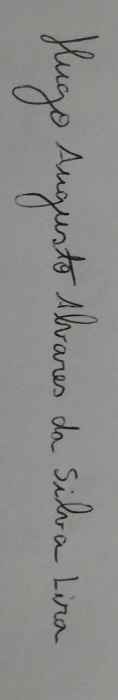 Hugo Augusto Alvares da Silva Lira